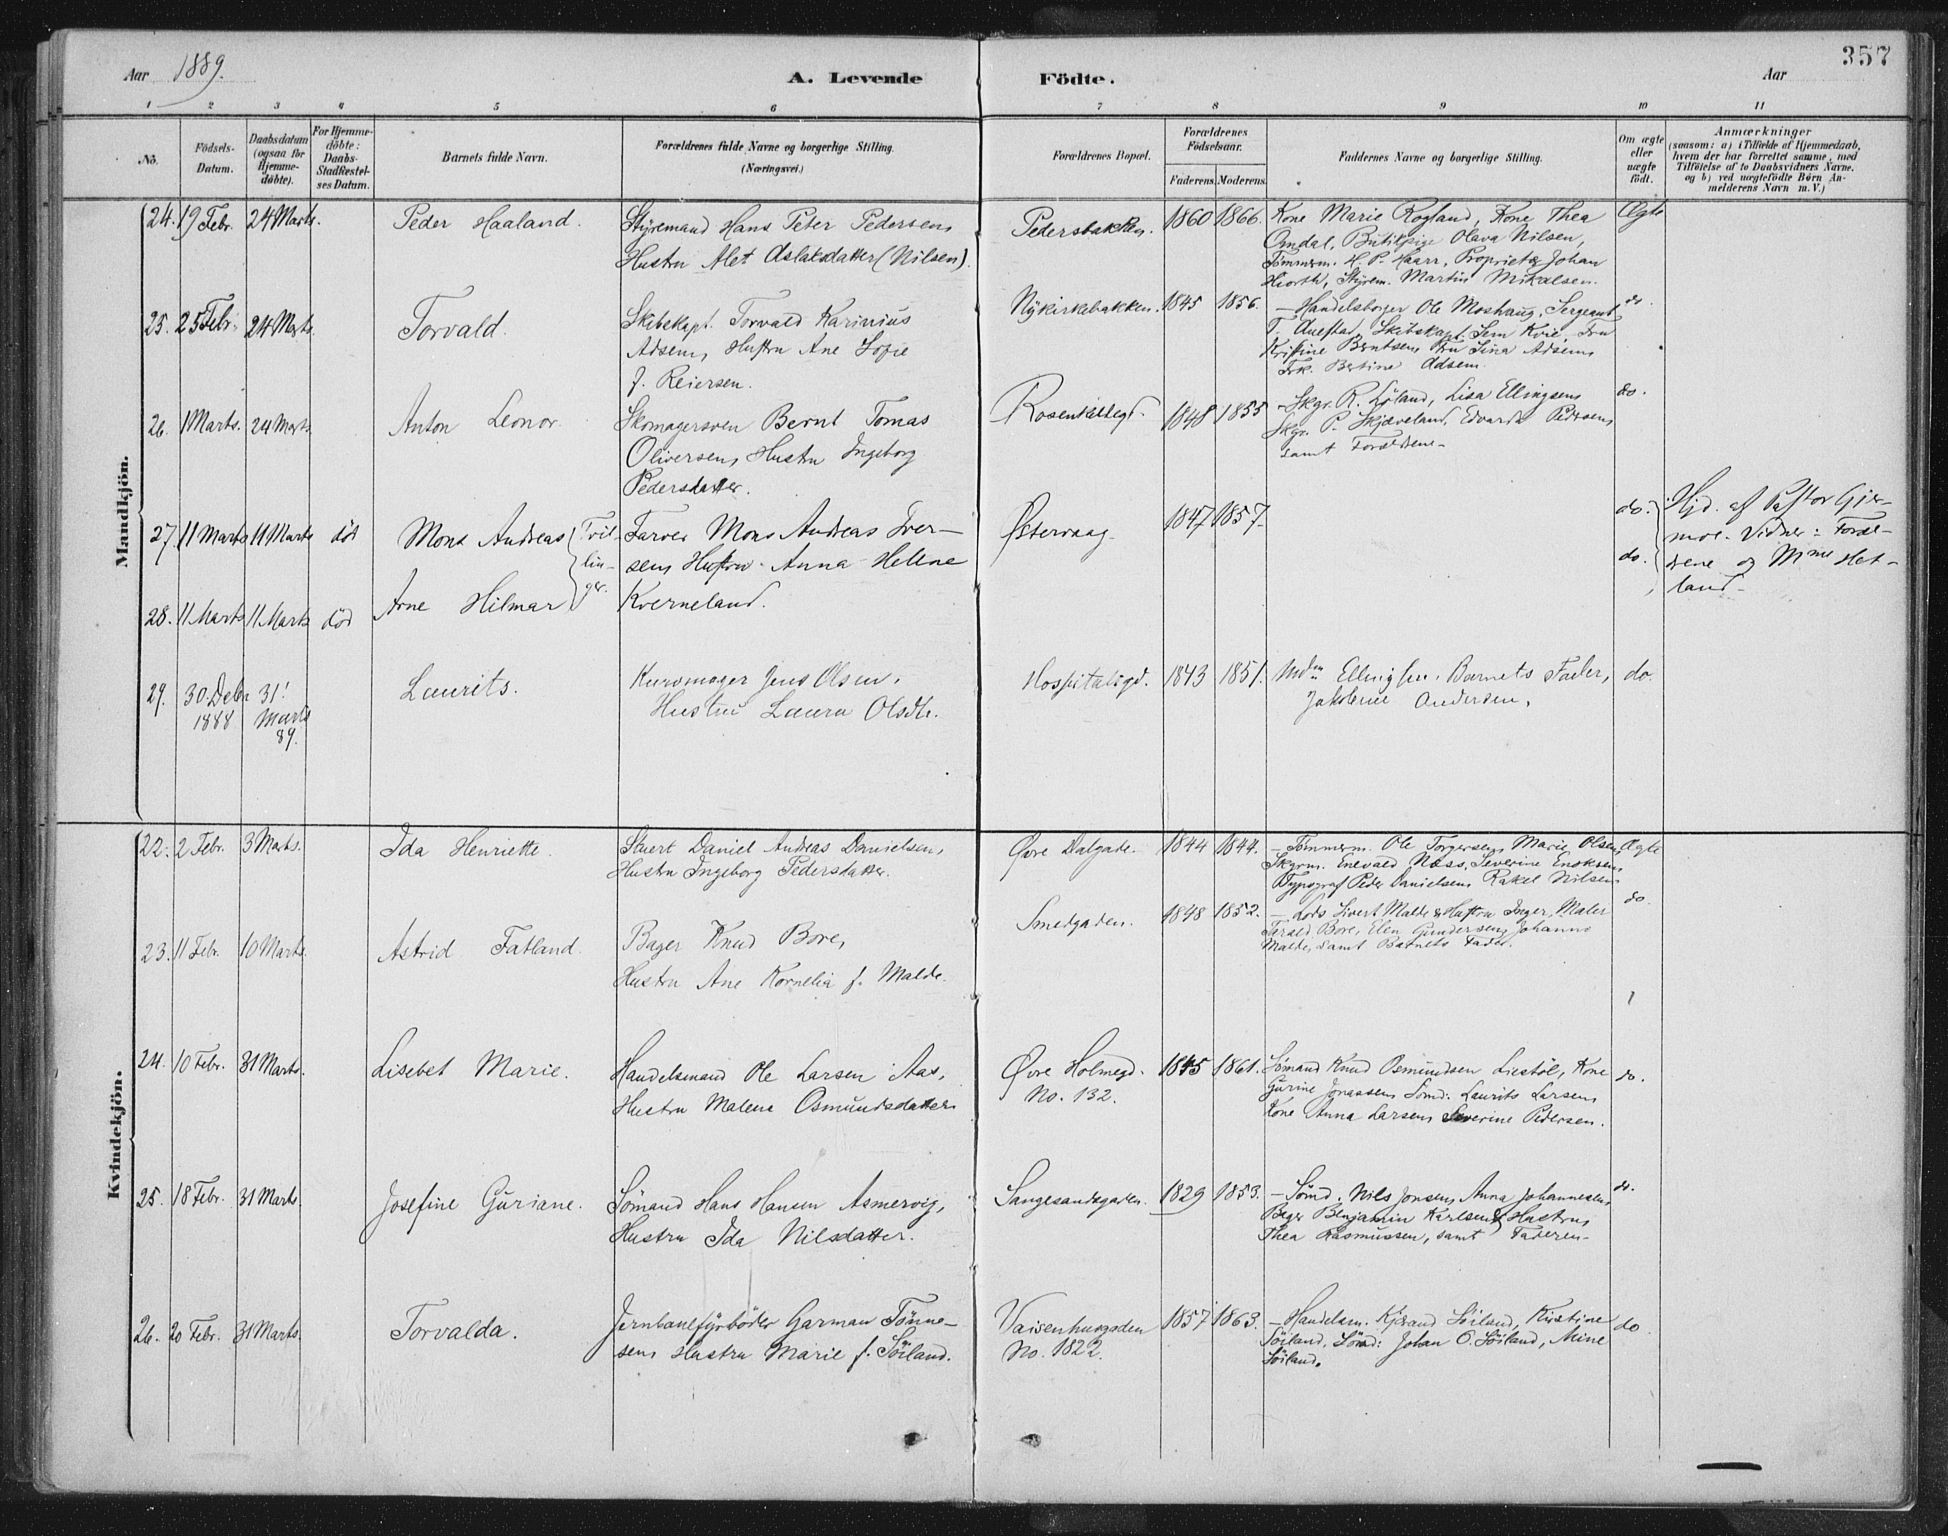 Aar 1889.
A. Levende Födte.
Aar
357
1 2 3 4 5 6 7 8 9 10 11
No.
Födsels-Datum.
Daabsdatum (ogsaa for Hjemme-döbte).
For Hjemme-döbte: Daabs-Stadfæstel-ses Datum.
Barnets fulde Navn.
Forældrenes fulde Navne og borgerlige Stilling.
(Næringsvei.)
Forældrenes Bopæl.
Forældrenes Födselsaar.
Faderens. Moderens.
Faddernes Navne og borgerlige Stilling.
Om ægte eller uægte födt.
Anmærkninger
(saasom: a) i Tilfælde af Hjemmedaab, hvem der har forrettet samme, med Tilföielse af to Daabsvidners Navne, og b) ved uægtefödte Börn An-melderens Navn m. V.)
Mandkjön.
24. 19 Febr. 24 Marts. Peder Haaland. Styremand Hans Peter Pedersen, Pedersbakken. 1860 1866. Kone Marie Rogland, Kone Thea Ægte
Hustru Alet Aslaksdatter (Nilsen). Omdal, Butikpige Olava Nilsen,
Tømmerm. H. P. Haarr, Proprietær Johan
Hiorth, Styrem. Martin Mikalsen.
25. 25 Febr. 24 Marts. Torvald. Skibskapt. Torvald Karinius Nykirkebakken. 1845 1856. – Handelsborger Ole Moshaug, Sergeant do.
Adsen, Hustru Ane Sofie T. Auestad, Skibskapt. Sem Kvie, Fru
f. Reiersen. Kristine Berntsen, Fru Sina Adsen,
Frk. Bertine Adsen.
26. 1 Marts. 24 Marts. Anton Leonor. Skomagersven Bernt Tomas Rosenkildegd. 1848 1855 – Skgr. R. Løland, Lisa Ellingsen, do.
Oliversen, Hustru Ingeborg Skgr. P. Skjæveland, Edvarda Pedersen,
Pedersdatter. samt Forældrene –
27. 11 Marts 11 Marts død Mons Andreas Tvil-lin-ger. Farver Mons Andreas Iver- Østervaag. 1847 1857. do. Hjd. af Pastor Gjer-
sen, Hustru Anna Helene do. moe. Vidner: Foræl-
28. 11 Marts 11 Marts død Arne Hilmar Kverneland. drene og Mme Het-
land –
29. 30 Debr 1888 31! Marts 89. Laurits. Kurvmager Jens Olsen, Hospitalsgd. 1843 1851. Mdm Ellingsen, Barnets Fader, do.
Hustru Laura Olsdtr. Jakobine Andersen.
Kvindekjön.
22. 2 Febr. 3 Marts. Ida Henriette. Stuert Daniel Andreas Danielsen, Øvre Dalgade. 1844 1844. – Tømmerm. Ole Torgersen, Marie Olsen, Ægte
Hustru Ingeborg Pedersdatter. Skgrm. Enevald Næss, Severine Enoksen,
Typograf Peder Danielsen, Rakel Nilsen
23. 11 Febr. 10 Marts. Astrid Fatland. Bager Knud Bore, Smedgaden. 1848 1852. – Lods Sivert Malde & Hustru Inger, Maler do.
Hustru Ane Kornelia f. Malde. Tarald Bore, Elen Gundersen, Johanne
Malde, samt Barnets Fader.
24. 10 Febr. 31 Marts. Lisebet Marie. Handelsmand Ole Larsen Aas, Øvre Holmegd. No. 132. 1845 1861. Sømand Knud Osmundsen Liestöl, Kone do.
Hustru Malena Osmundsdatter. Gurine Jonassen, Sømd: Laurits Larsen,
Kone Anna Larsen, Severine Pedersen.
25. 18 Febr. 31 Marts. Josefine Guriane. Sømand Hans Hansen Asmervig, Sangesandsgaten. 1829 1853. – Sømd. Nils Jonsen, Anna Johannesen, do.
Hustru Ida Nilsdatter. Bager Benjamin Karlsen & Hustru,
Thea Rasmussen, samt Faderen –
26. 20 Febr. 31 Marts. Torvalda. Jernbanefyrbøder Garman Tønne- Vaisenhusgaden No. 1822. 1857 1863. – Handelsm. Kjørand Söiland, Kirstine do
sen, Hustru Marie f. Söiland. Söiland, Sömd: Johan O. Söiland, Mine
Söiland.